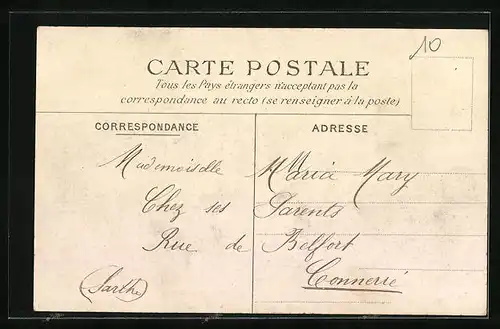 10
CARTE POSTALE
Tous les Pays étrangers n'acceptant pas la
correspondance au recto (se renseigner à la poste)
CORRESPONDANCE
ADRESSE
Mademoiselle Maria Mary
Chez ses Parents
Rue de Belfort
Connerré
(Sarthe)